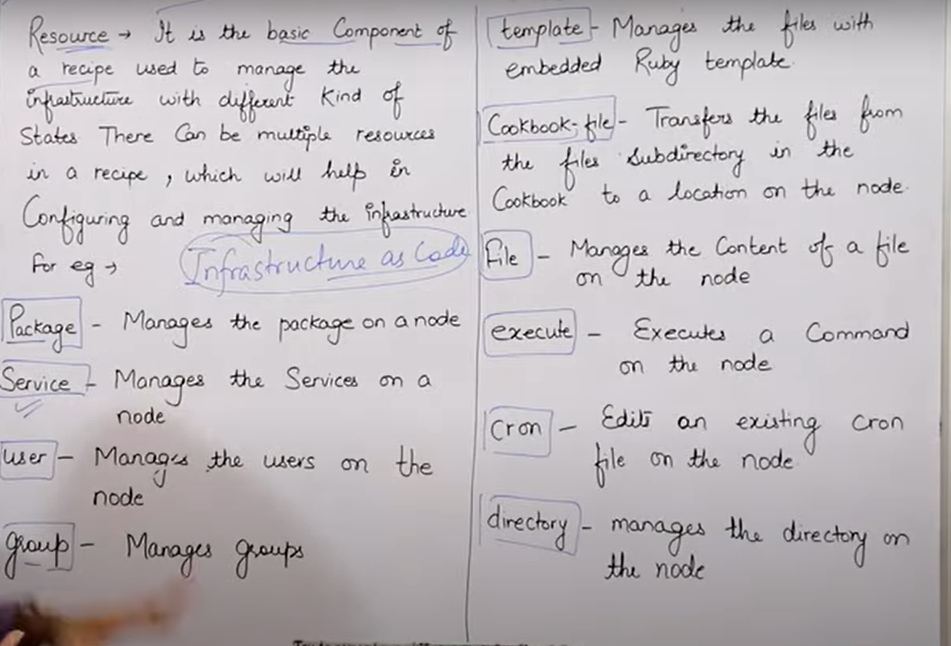 Resource → It is the basic Component of
a recipe used to manage the
infrastructure with different Kind of
States There Can be multiple resources
in a recipe, which will help in
Configuring and managing the infrastructure
For eg → Infrastructure as Code
Package - Manages the package on a node
Service - Manages the Services on a
node
user - Manages the users on the
node
group - Manages groups
template - Manages the files with
embedded Ruby template.
Cookbook-file - Transfers the files from
the files subdirectory in the
Cookbook to a location on the node.
File - Manages the Content of a file
on the node
execute - Executes a Command
on the node
Cron - Edits an existing cron
file on the node
directory - manages the directory on
the node